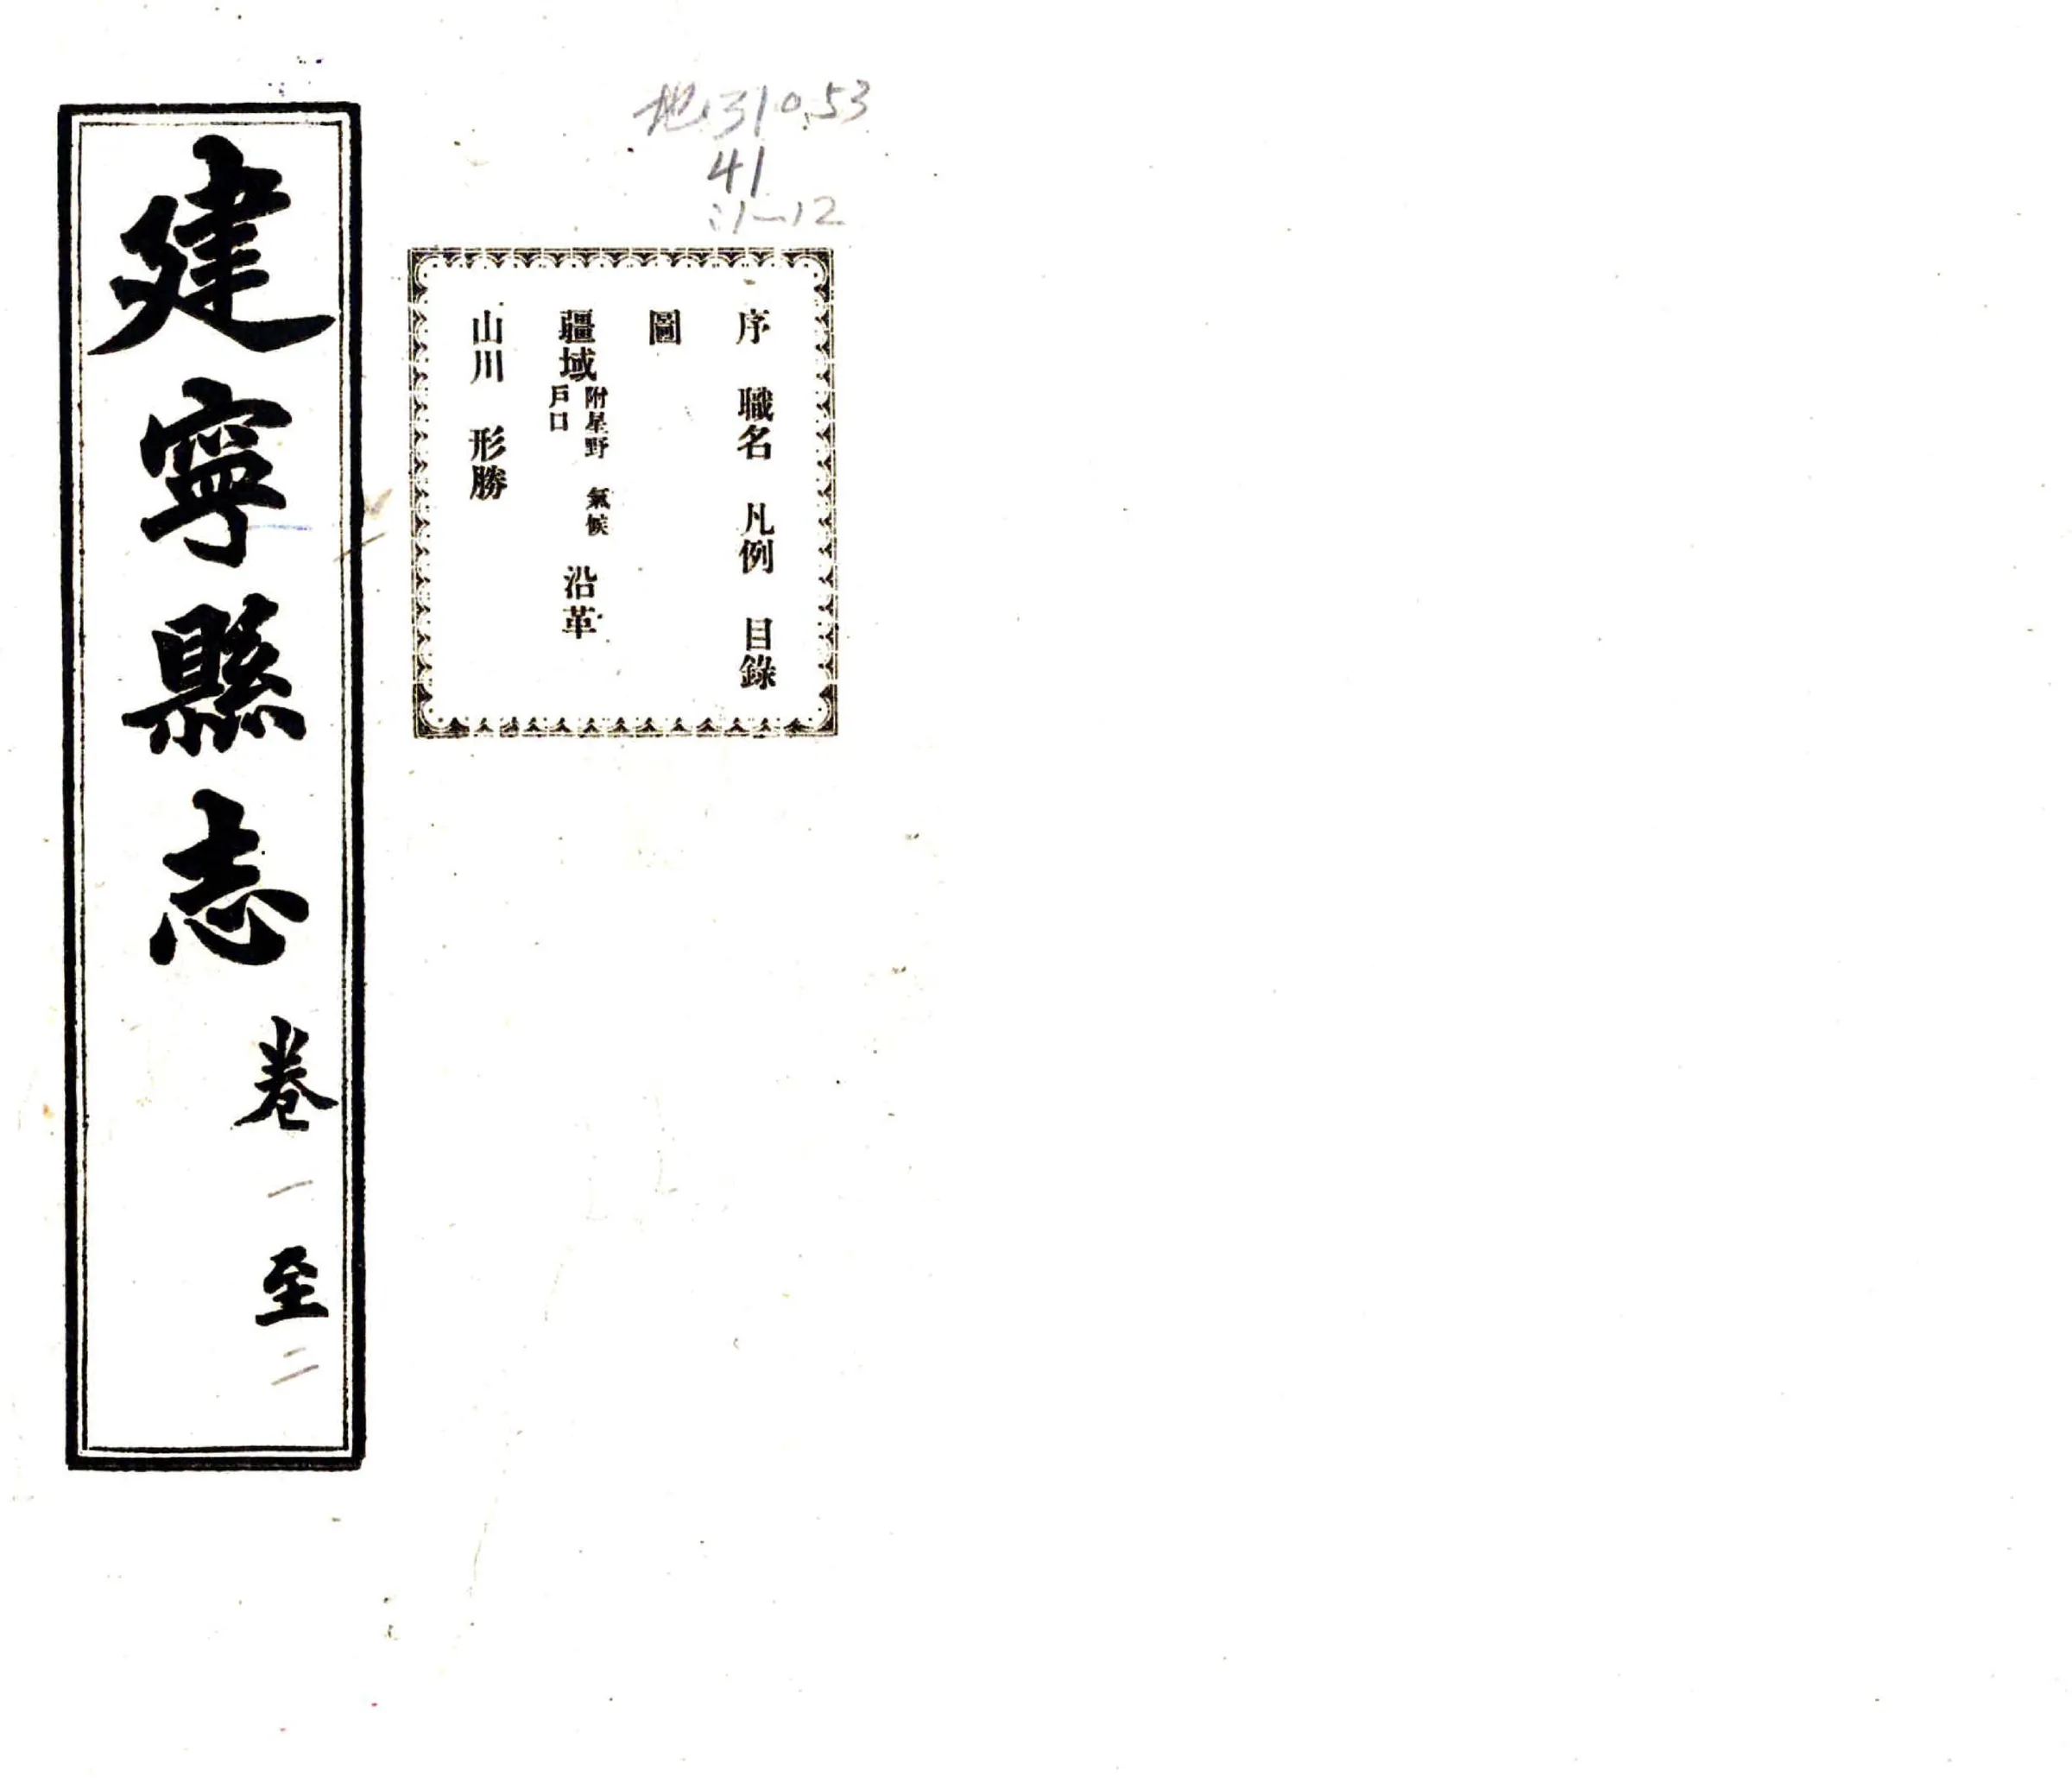 地310.53
41
:1-12
序 職名 凡例 目錄
圖
疆域 附星野 氣候 戶口 沿革
山川 形勝
建寧縣志 卷一至二